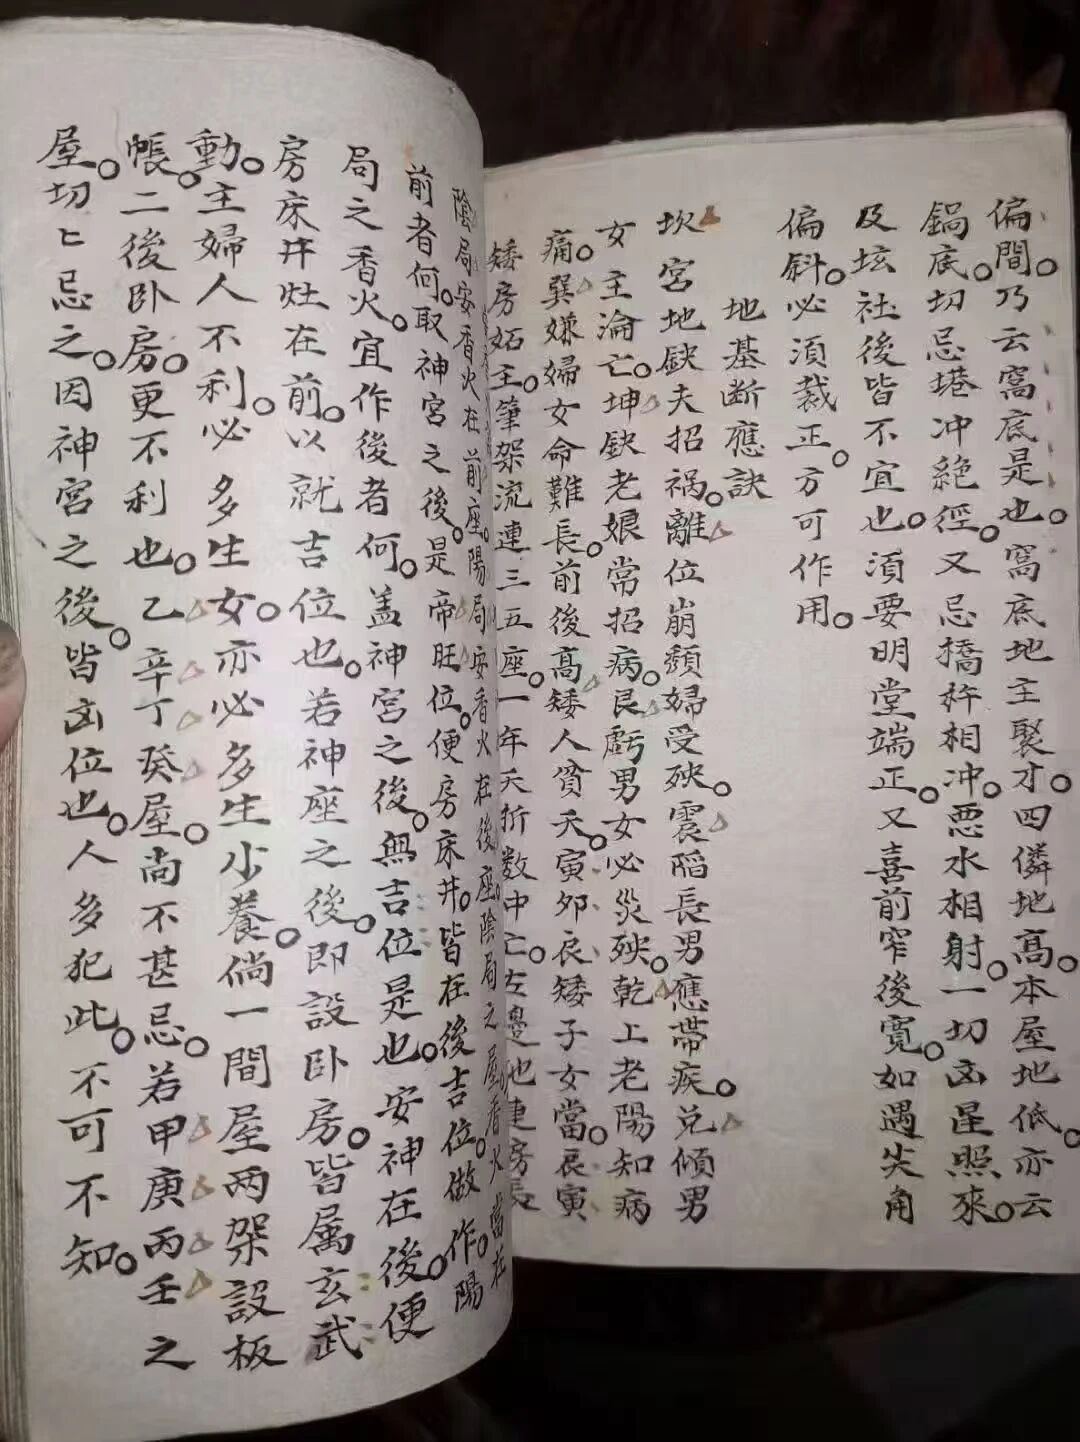 偏間。乃云窩底是也。窩底地主聚才。四僯地高。本屋地低。亦云
鍋底。切忌塔冲絶徑。又忌橋杵相冲。悪水相射。一切凶星照來。
及坛社後皆不宜也。須要明堂端正。又喜前窄後寛。如遇尖角
偏斜。必須裁正。方可作用。
地基断應訣
坎宮地缺夫招禍。離位崩頽婦受殃。震陷長男應带疾。兑傾男
女主淪亡。坤缺老娘常招病。艮虧男女必災殃。乾上老陽知病
痛。巽嫌婦女命難長。前後高矮人貧夭。寅夘艮矮子女當。艮寅
矮房妬主。筆架流連三五座。一年夭折数中亡。左邊地連房長
陰局安香火在前座。陽局安香火在後座。陰局之屋香火當在
前者何。取神宮之後。是帝旺位。便房床井。皆在後吉位。做作。陽
局之香火。宜作後者何。盖神宮之後。無吉位是也。安神在後。便
房床井灶在前。以就吉位也。若神座之後。即設卧房。皆属玄武
動。主婦人不利。必多生女。亦必多生少養。倘一間屋两架設板
帳。二後卧房。更不利也。乙辛丁癸屋。尚不甚忌。若甲庚丙壬之
屋。切匕忌之。因神宮之後。皆凶位也。人多犯此。不可不知。